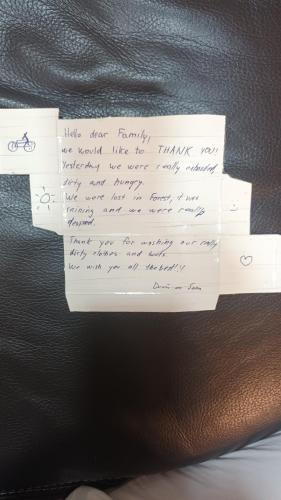 Hello dear Family,
we would like to THANK YOU!!
Yesterday we were really exhausted,
dirty and hungry.
We were lost in Forest, it was
raining and we were really
desperd.
Thank you for washing our really
dirty clothes and boots.
We wish you all the best!!!